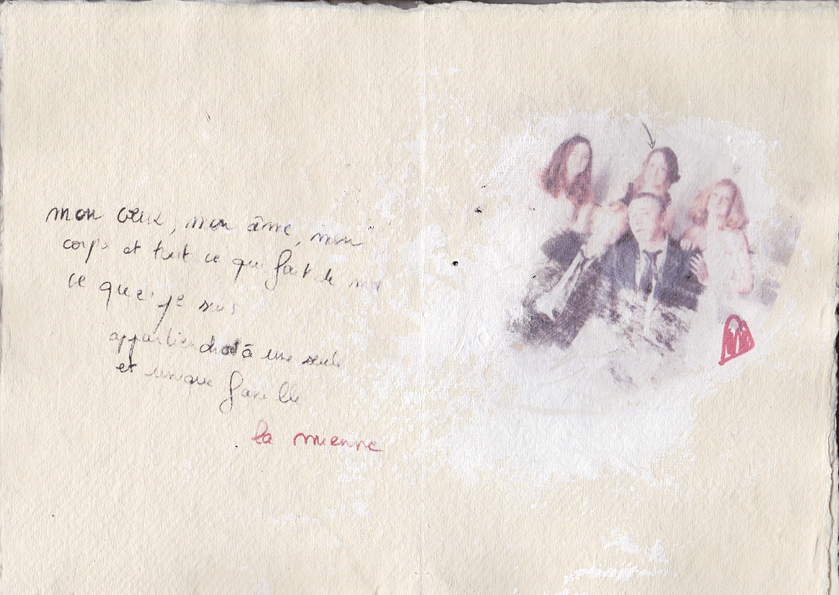 mon cœur, mon âme, mon
corps et tout ce qui fait de moi
ce que je suis
appartiendront à une seule
et unique famille
la mienne